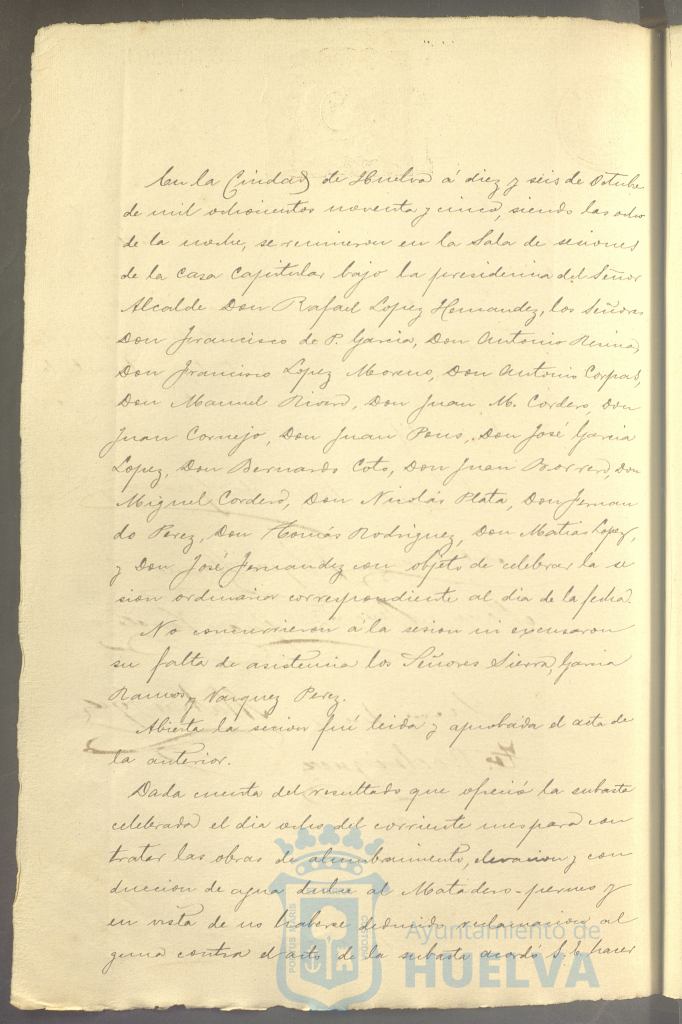 En la Ciudad de Huelva á diez y seis de Octubre
de mil ochocientos noventa y cinco, siendo las ocho
de la noche, se reunieron en la Sala de sesiones
de la casa Capitular bajo la presidencia del Señor
Alcalde Don Rafael Lopez Hernandez, los Señores
Don Francisco de P. Garcia, Don Antonio Reina,
Don Francisco Lopez Moreno, Don Antonio Corpas,
Don Manuel Rivero, Don Juan M. Cordero, Don
Juan Cornejo, Don Juan Pons, Don José Garcia
Lopez, Don Bernardo Coto, Don Juan Borrero, Don
Miguel Cordero, Don Nicolás Plata, Don Fernan
do Perez, Don Tomás Rodriguez, Don Matias Lopez,
y Don José Fernandez con objeto de celebrar la se
sion ordinaria correspondiente al dia de la fecha.
No concurrieron á la sesion ni excusaron
su falta de asistencia los Señores Sierra, Garcia
Ramos y Vazquez Perez.
Abierta la sesion fué leida y aprobada el acta de
la anterior.
Dada cuenta del resultado que ofreció la subasta
celebrada el dia ocho del corriente mes para con
tratar las obras de alumbramiento, elevacion y con
duccion de agua dulce al Matadero-permes y
en vista de no haberse deducido reclamacion al
guna contra el acto de la subasta acordó S. E. hacer
Ayuntamiento de
HUELVA